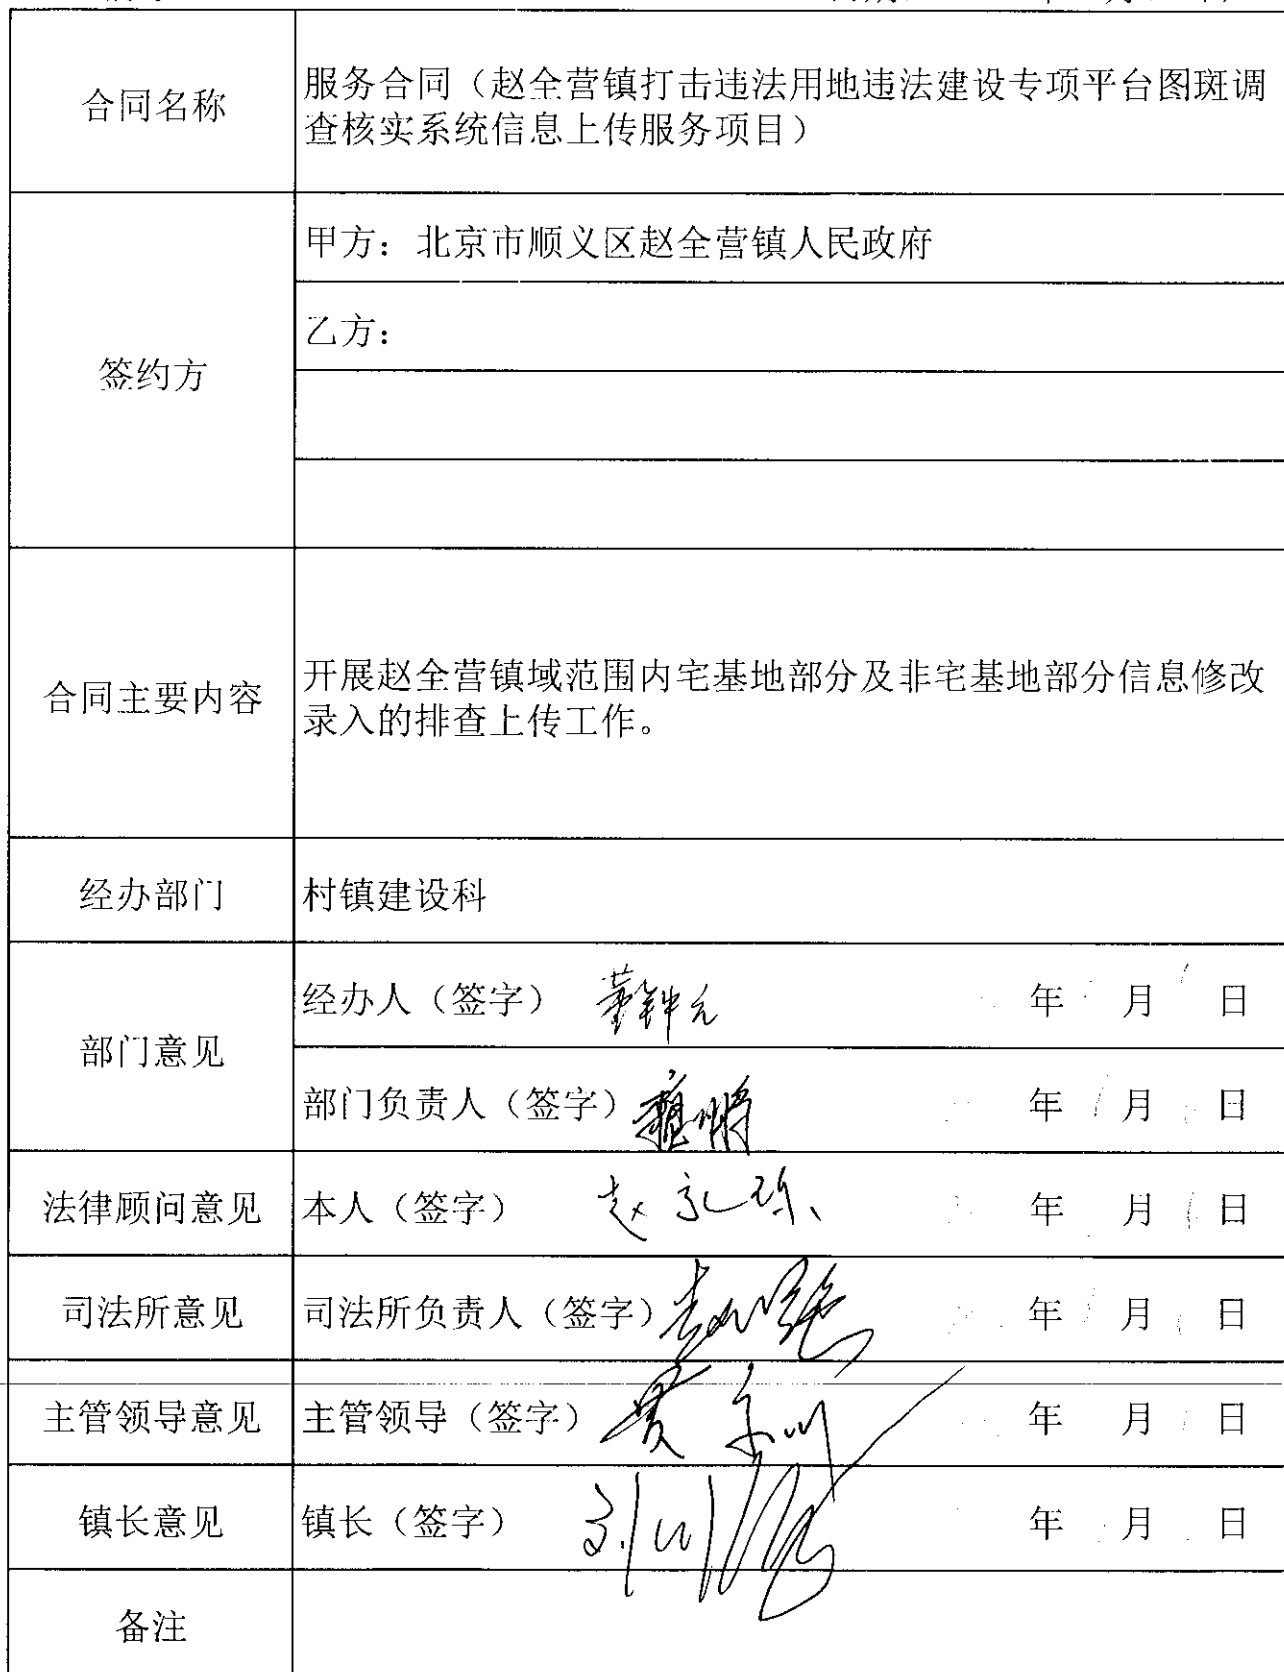 合同名称
服务合同（赵全营镇打击违法用地违法建设专项平台图斑调
查核实系统信息上传服务项目）
签约方
甲方：北京市顺义区赵全营镇人民政府
乙方：
合同主要内容
开展赵全营镇域范围内宅基地部分及非宅基地部分信息修改
录入的排查上传工作。
经办部门
村镇建设科
部门意见
经办人（签字） 年 月 日
部门负责人（签字） 年 月 日
法律顾问意见
本人（签字） 年 月 日
司法所意见
司法所负责人（签字） 年 月 日
主管领导意见
主管领导（签字） 年 月 日
镇长意见
镇长（签字） 年 月 日
备注